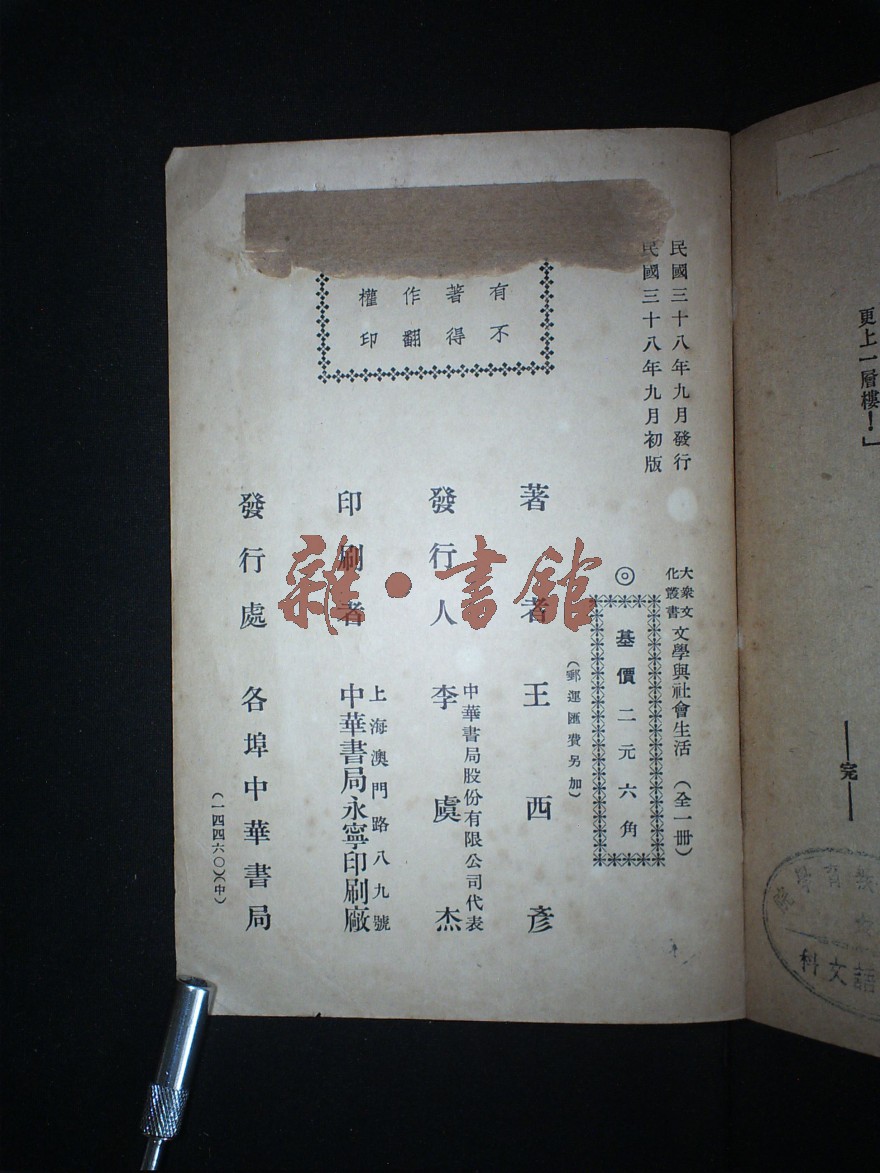 民國三十八年九月發行
民國三十八年九月初版
大衆文化叢書
文學與社會生活(全一冊)
◎
基價二元六角
(郵運匯費另加)
有著作權
不得翻印
著者 王西彥
發行人 中華書局股份有限公司代表
李虞杰
印刷者 上海澳門路八九號
中華書局永寧印刷廠
發行處 各埠中華書局
(一四四六〇)(中)
雜·書館
更上一層樓!」
——完——
語文科